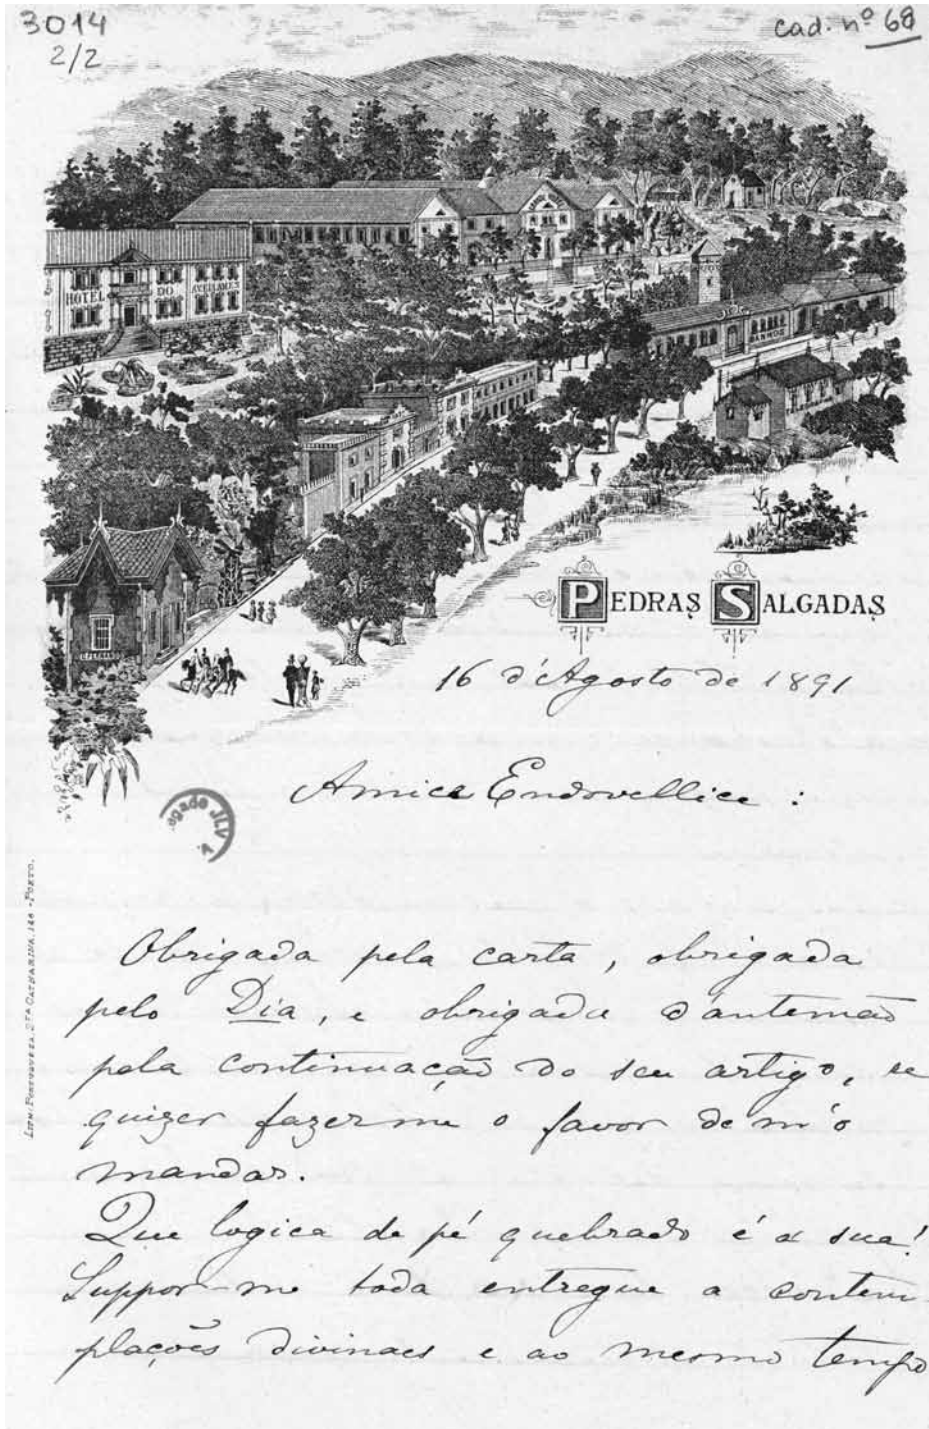 3014
2/2
cad. nº 68
HOTEL DO AVELLAMES
BANHOS
D. FERNANDO
PEDRAS SALGADAS
16 d'Agosto de 1891
Amice Endovellice :
LITH: PORTUGUEZA, STA CATHARINA, 148 - PORTO.
Obrigada pela carta, obrigada
pelo Dia, e obrigada d'antemão
pela continuação do seu artigo, se
quizer fazer me o favor de m'o
mandar.
Que logica de pé quebrado é a sua!
Suppor-me toda entregue a contem
plações divinaes e ao mesmo tempo